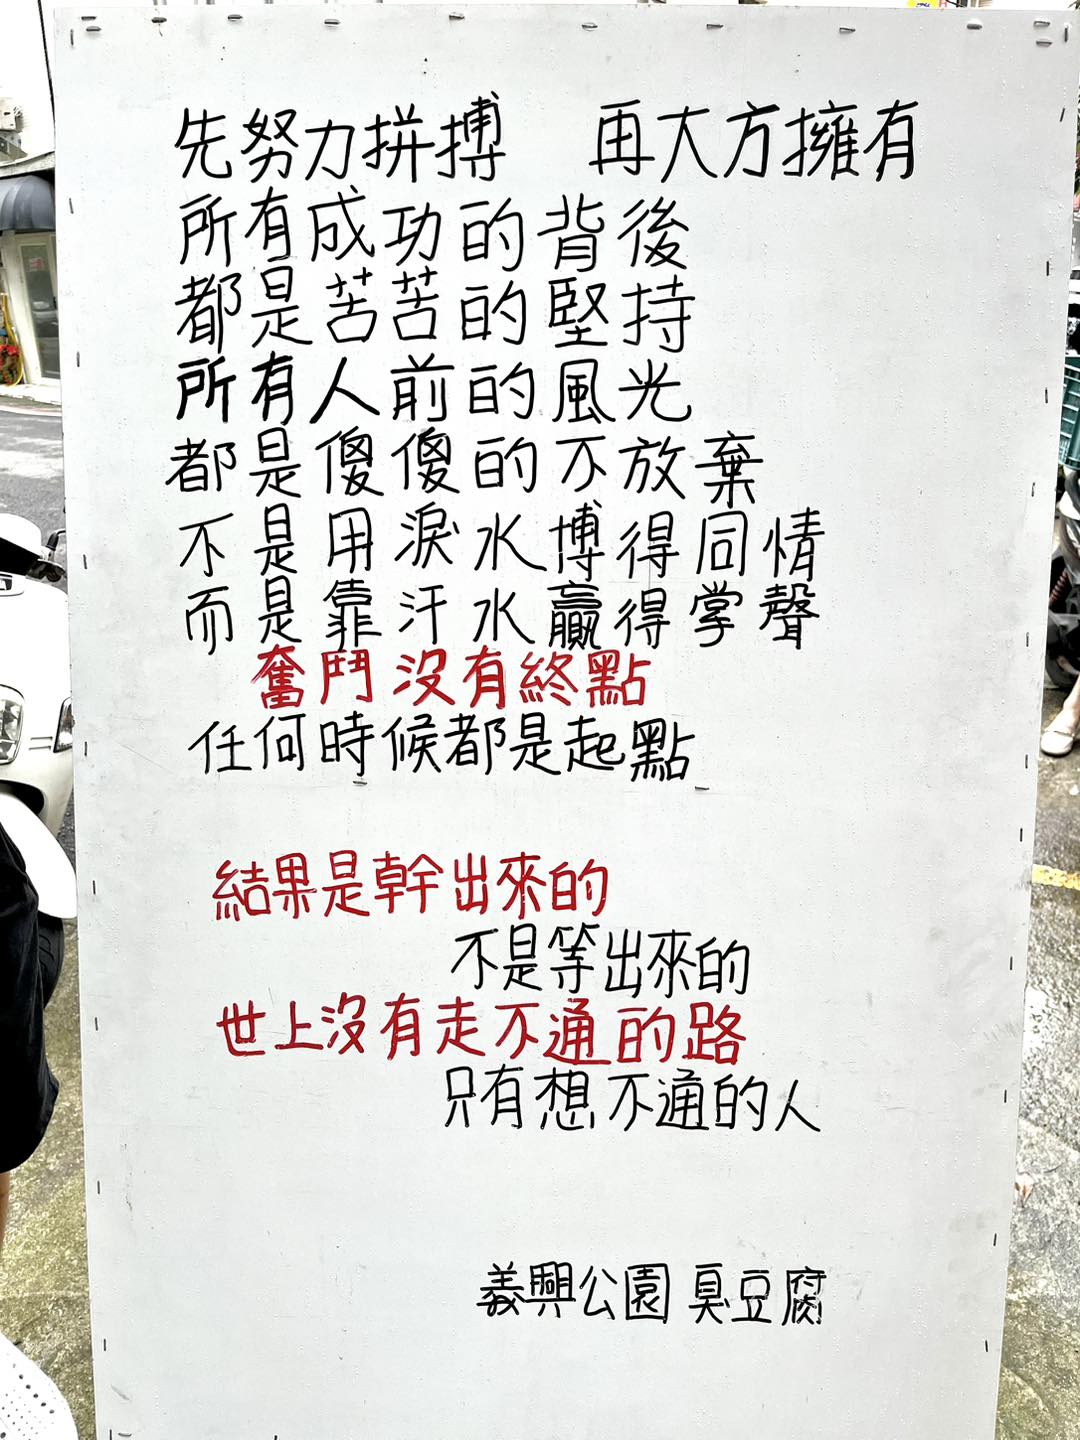 先努力拼搏 再大方擁有
所有成功的背後
都是苦苦的堅持
所有人前的風光
都是傻傻的不放棄
不是用淚水博得同情
而是靠汗水贏得掌聲
奮鬥沒有終點
任何時候都是起點
結果是幹出來的
不是等出來的
世上沒有走不通的路
只有想不通的人
義興公園 臭豆腐